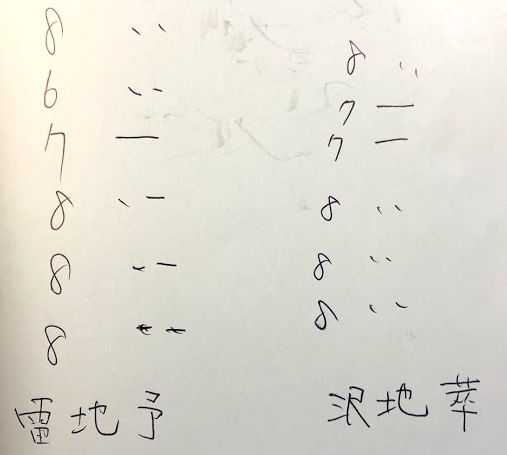 8
6
7
8
8
8
雷地予
8
7
7
8
8
8
沢地萃